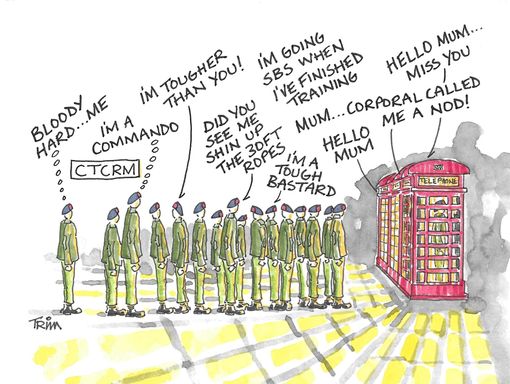 BLOODY
HARD...ME
I'M A
COMMANDO
CTCRM
I'M TOUGHER
THAN YOU!
DID YOU
SEE ME
SHIN UP
THE 30FT
ROPES
I'M GOING
SBS WHEN
I'VE FINISHED
TRAINING
I'M A
TOUGH
BASTARD
HELLO
MUM
MUM... CORPORAL CALLED
ME A NOD!
HELLO MUM...
MISS YOU
TELEPHONE
TRIM